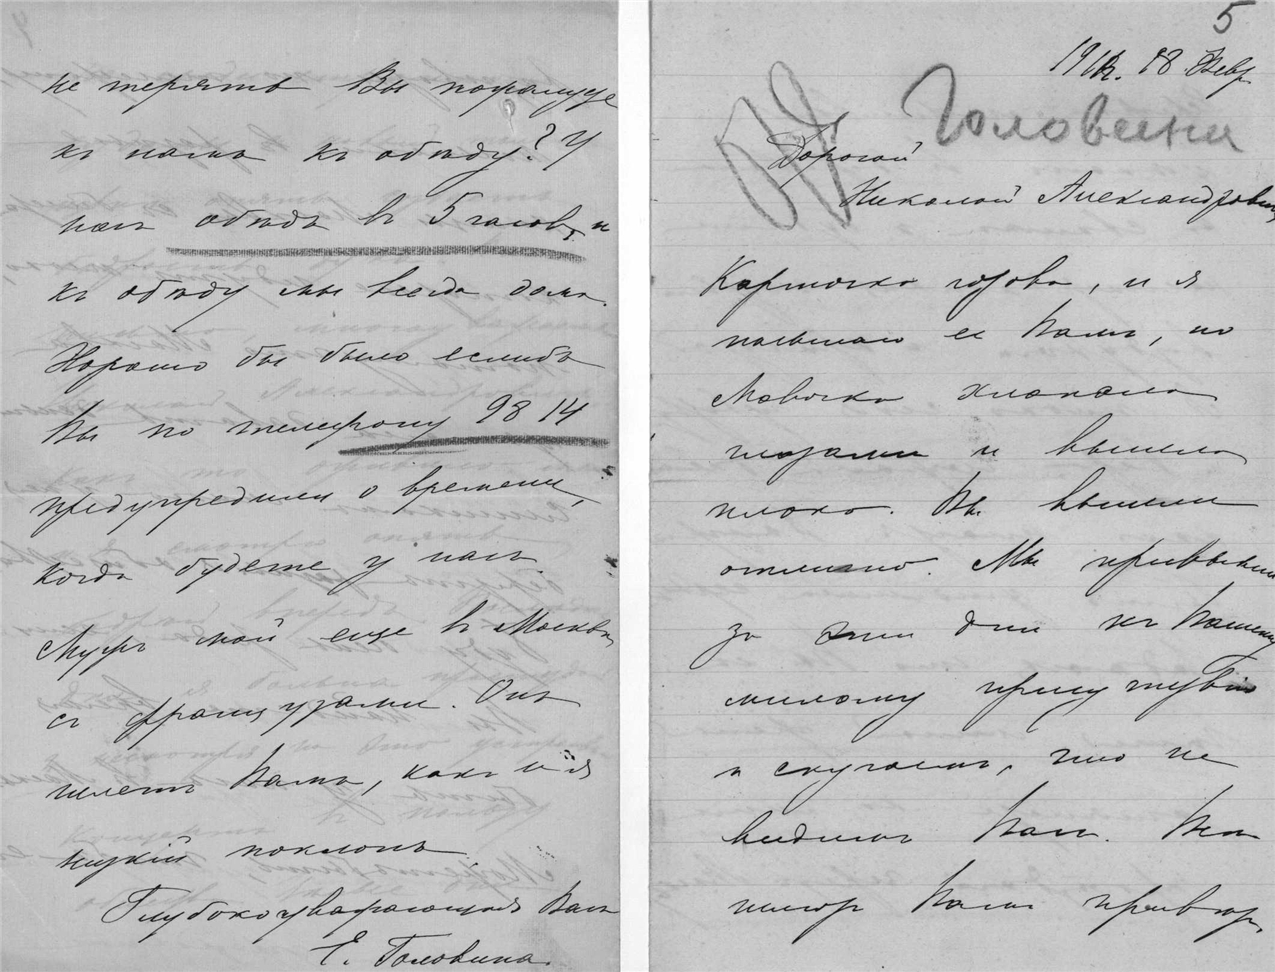 не терять Вы пожалуйте
къ намъ къ обѣду? У
насъ обѣдъ в 5 часовъ, и
къ обѣду мы всегда дома.
Хорошо бы было еслибъ
Вы по телефону 98 14
предупредили о времени,
когда будете у насъ.
Мужъ мой еще в Москвѣ
съ французами. Онъ
шлетъ Вамъ, какъ и я
низкій поклонъ.
Глубокоуважающая Васъ
Е. Головина.
5
1912. 18 Февр
Головина
Дорогой
Николай Александровичъ
Карточка готова, и я
посылаю ее Вамъ, но
Мавочка хлопала
глазами и вышла
плохо. Вы вышли
отлично. Мы привыкли
за эти дни къ Вашему
милому присутствію
и скучаемъ, что не
видимъ Васъ. Всѣ
шлютъ Вамъ приветъ,